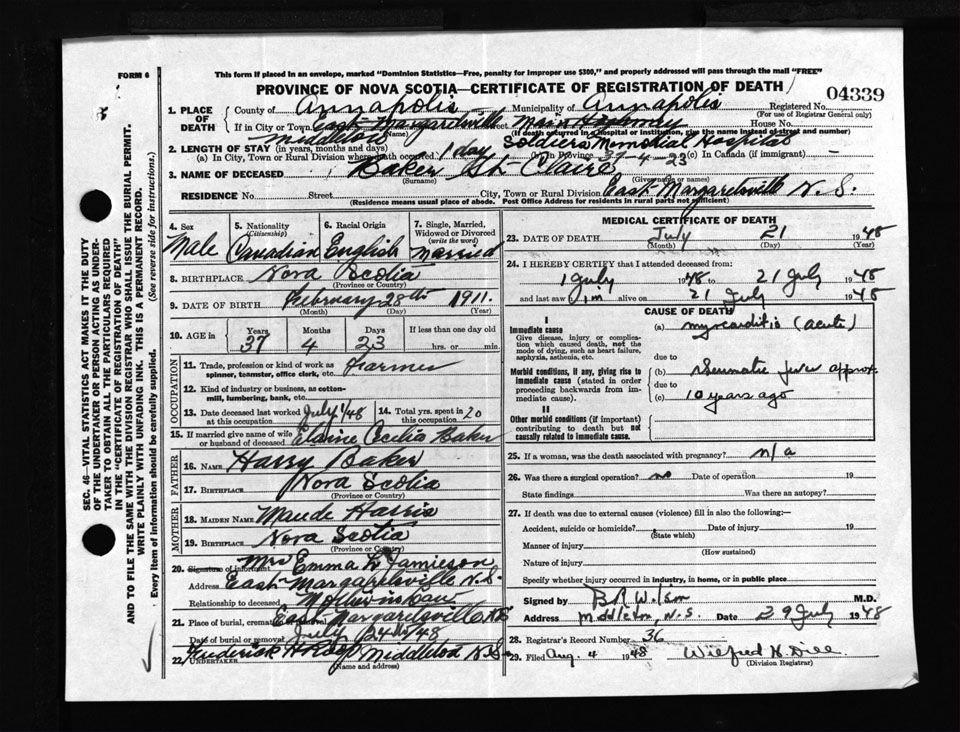 FORM 6
This form if placed in an envelope, marked "Dominion Statistics—Free, penalty for improper use $300," and properly addressed will pass through the mail "FREE"
PROVINCE OF NOVA SCOTIA—CERTIFICATE OF REGISTRATION OF DEATH
04339
1. PLACE OF DEATH
County of Annapolis Municipality of Annapolis Registered No.
(For use of Registrar General only)
If in City or Town East Margaretsville Street Main Highway House No.
(If death occurred in a hospital or institution, give the name instead of street and number)
Middleton Soldiers Memorial Hospital
2. LENGTH OF STAY (in years, months and days)
(a) In City, Town or Rural Division where death occurred 1 day (b) In Province 37-4-23 (c) In Canada (if immigrant)
3. NAME OF DECEASED Baker St. Claire
(Surname) (Given name or names)
RESIDENCE No. Street City, Town or Rural Division East Margaretsville N.S.
(Residence means usual place of abode. Post Office Address for residents in rural parts not sufficient)
4. Sex Male
5. Nationality (Citizenship) Canadian
6. Racial Origin English
7. Single, Married, Widowed or Divorced (write the word) Married
8. BIRTHPLACE Nova Scotia
(Province or Country)
9. DATE OF BIRTH February 28th 1911.
(Month) (Day) (Year)
10. AGE in Years 37 Months 4 Days 23 If less than one day old hrs. or min.
OCCUPATION
11. Trade, profession or kind of work as spinner, teamster, office clerk, etc. Farmer
12. Kind of industry or business, as cotton-mill, lumbering, bank, etc.
13. Date deceased last worked at this occupation July 1/48
14. Total yrs. spent in this occupation 20
15. If married give name of wife or husband of deceased Elaine Cecilia Baker
FATHER
16. NAME Harry Baker
17. BIRTHPLACE Nova Scotia
(Province or Country)
MOTHER
18. MAIDEN NAME Maude Harris
19. BIRTHPLACE Nova Scotia
(Province or Country)
20. Signature of informant Mrs Emma L Jamieson
Address East Margaretsville N.S.
Relationship to deceased Mother in Law
21. Place of burial, cremation or removal East Margaretsville N.S
Date of burial or removal July 24th/48
22. UNDERTAKER Frederick H Roop Middleton N.S.
(Name and address)
MEDICAL CERTIFICATE OF DEATH
23. DATE OF DEATH July 21 1948
(Month) (Day) (Year)
24. I HEREBY CERTIFY that I attended deceased from:
1 July 1948 to 21 July 1948
and last saw him alive on 21 July 1948
CAUSE OF DEATH
I
Immediate cause
Give disease, injury or complication which caused death, not the mode of dying, such as heart failure, asphyxia, asthenia, etc.
(a) myocarditis (acute)
due to
Morbid conditions, if any, giving rise to immediate cause (stated in order proceeding backwards from immediate cause).
(b) Rheumatic fever approx.
due to
(c) 10 years ago
II
Other morbid conditions (if important) contributing to death but not causally related to immediate cause.
25. If a woman, was the death associated with pregnancy? n/a
26. Was there a surgical operation? no Date of operation 19
State findings Was there an autopsy?
27. If death was due to external causes (violence) fill in also the following:—
Accident, suicide or homicide? Date of injury 19
(State which)
Manner of injury
(How sustained)
Nature of injury
Specify whether injury occurred in industry, in home, or in public place
Signed by M.D.
Address Middleton, N.S. Date 29 July 1948
28. Registrar's Record Number 36
29. Filed Aug. 4 1948 Wilfred H. Dill
(Division Registrar)
SEC. 46—VITAL STATISTICS ACT MAKES IT THE DUTY
OF THE UNDERTAKER OR PERSON ACTING AS UNDERTAKER TO OBTAIN ALL THE PARTICULARS REQUIRED
IN THE "CERTIFICATE OF REGISTRATION OF DEATH"
AND TO FILE THE SAME WITH THE DIVISION REGISTRAR WHO SHALL ISSUE THE BURIAL PERMIT.
WRITE PLAINLY WITH UNFADING INK. THIS IS A PERMANENT RECORD.
Every item of information should be carefully supplied. (See reverse side for instructions.)